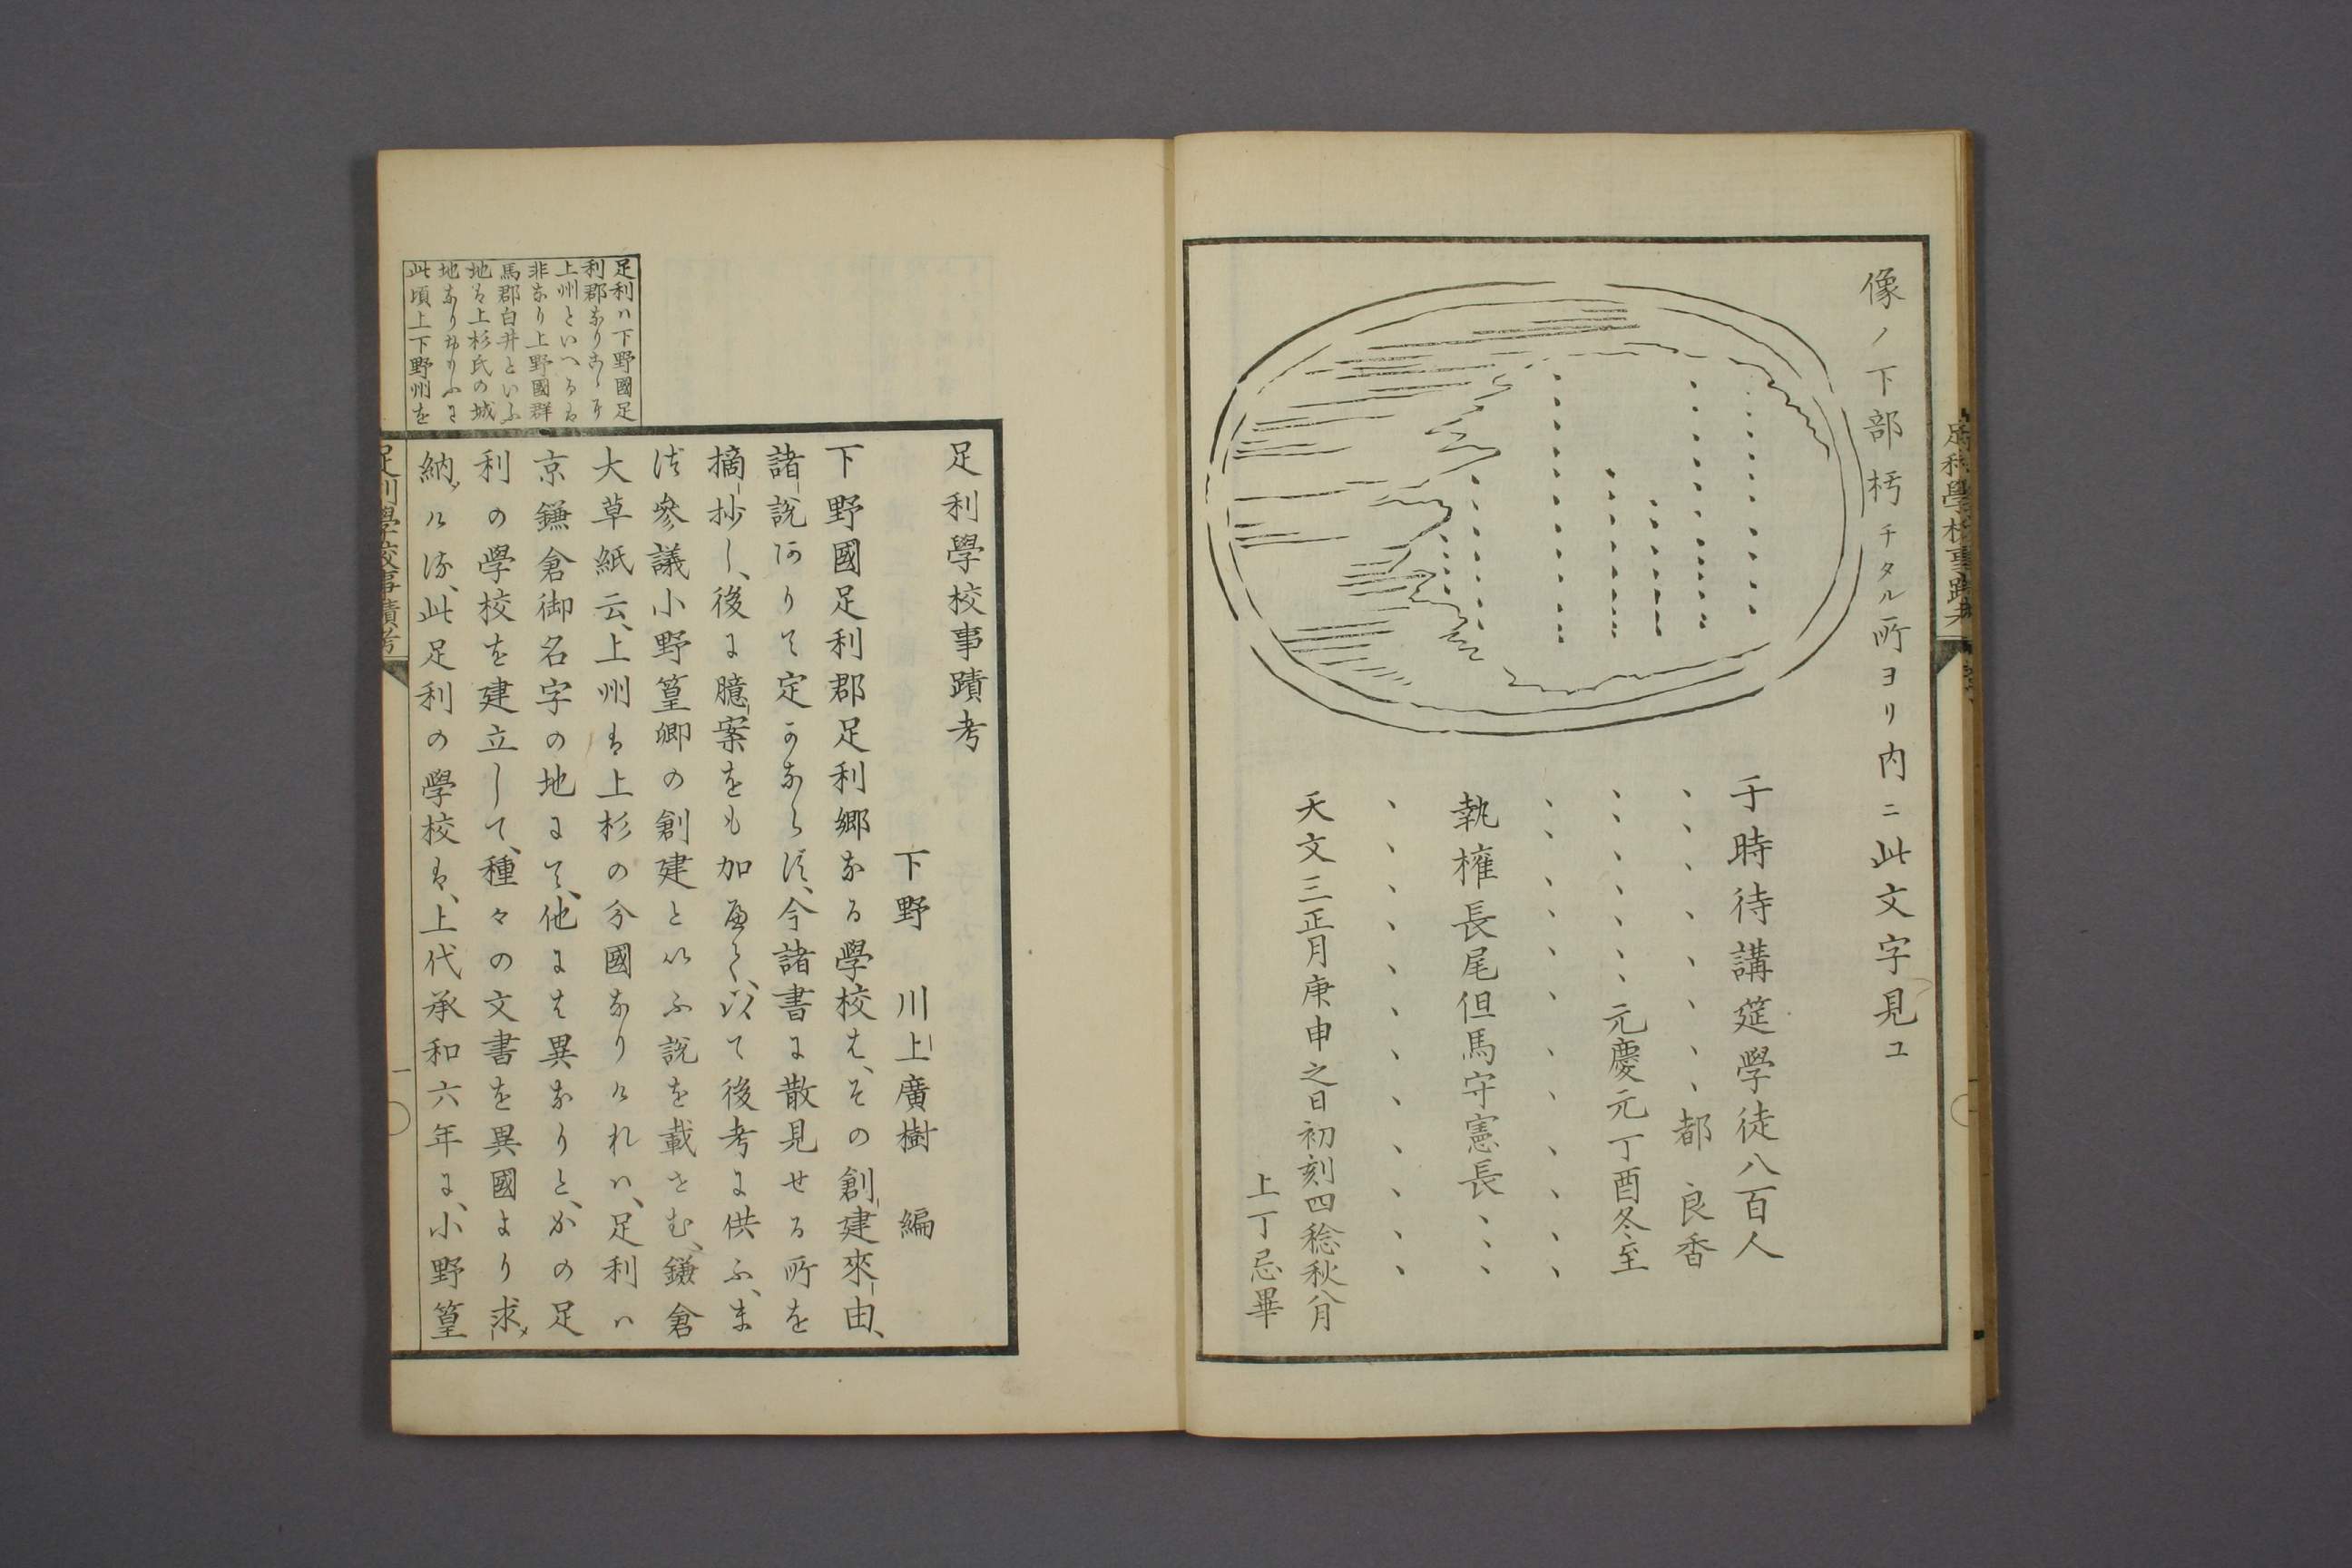 像ノ下部朽チタル所ヨリ内ニ此文字見ユ
于時待講筵學徒八百人
、、、、、、、都良香
、、、、、、元慶元丁酉冬至
、、、、、、、、、、
執權長尾但馬守憲長、、、
、、、、、、、、、、
天文三正月庚申之日初刻四稔秋八月
上丁忌畢
足利學校事蹟考
足利學校事蹟考
下野 川上廣樹 編
下野國足利郡足利郷なる學校は、その創建來由、
諸説ありて定かならず、今諸書に散見せる所を
摘抄し、後に臆案をも加へて、以て後考に供ふ、ま
づ參議小野篁卿の創建といふ説を載せむ、鎌倉
大草紙云、上州は上杉の分國なりければ、足利ハ
京鎌倉御名字の地にて、他には異なりと、かの足
利の學校を建立して、種々の文書を異國より求メ
納ケル、此足利の學校は、上代承和六年に、小野篁
足利ハ下野國足
利郡なり
上州といへるは
非なり上野國群
馬郡白井といふ
地は上杉氏の城
地なり
此頃上下野州を
足利學校事蹟考
一